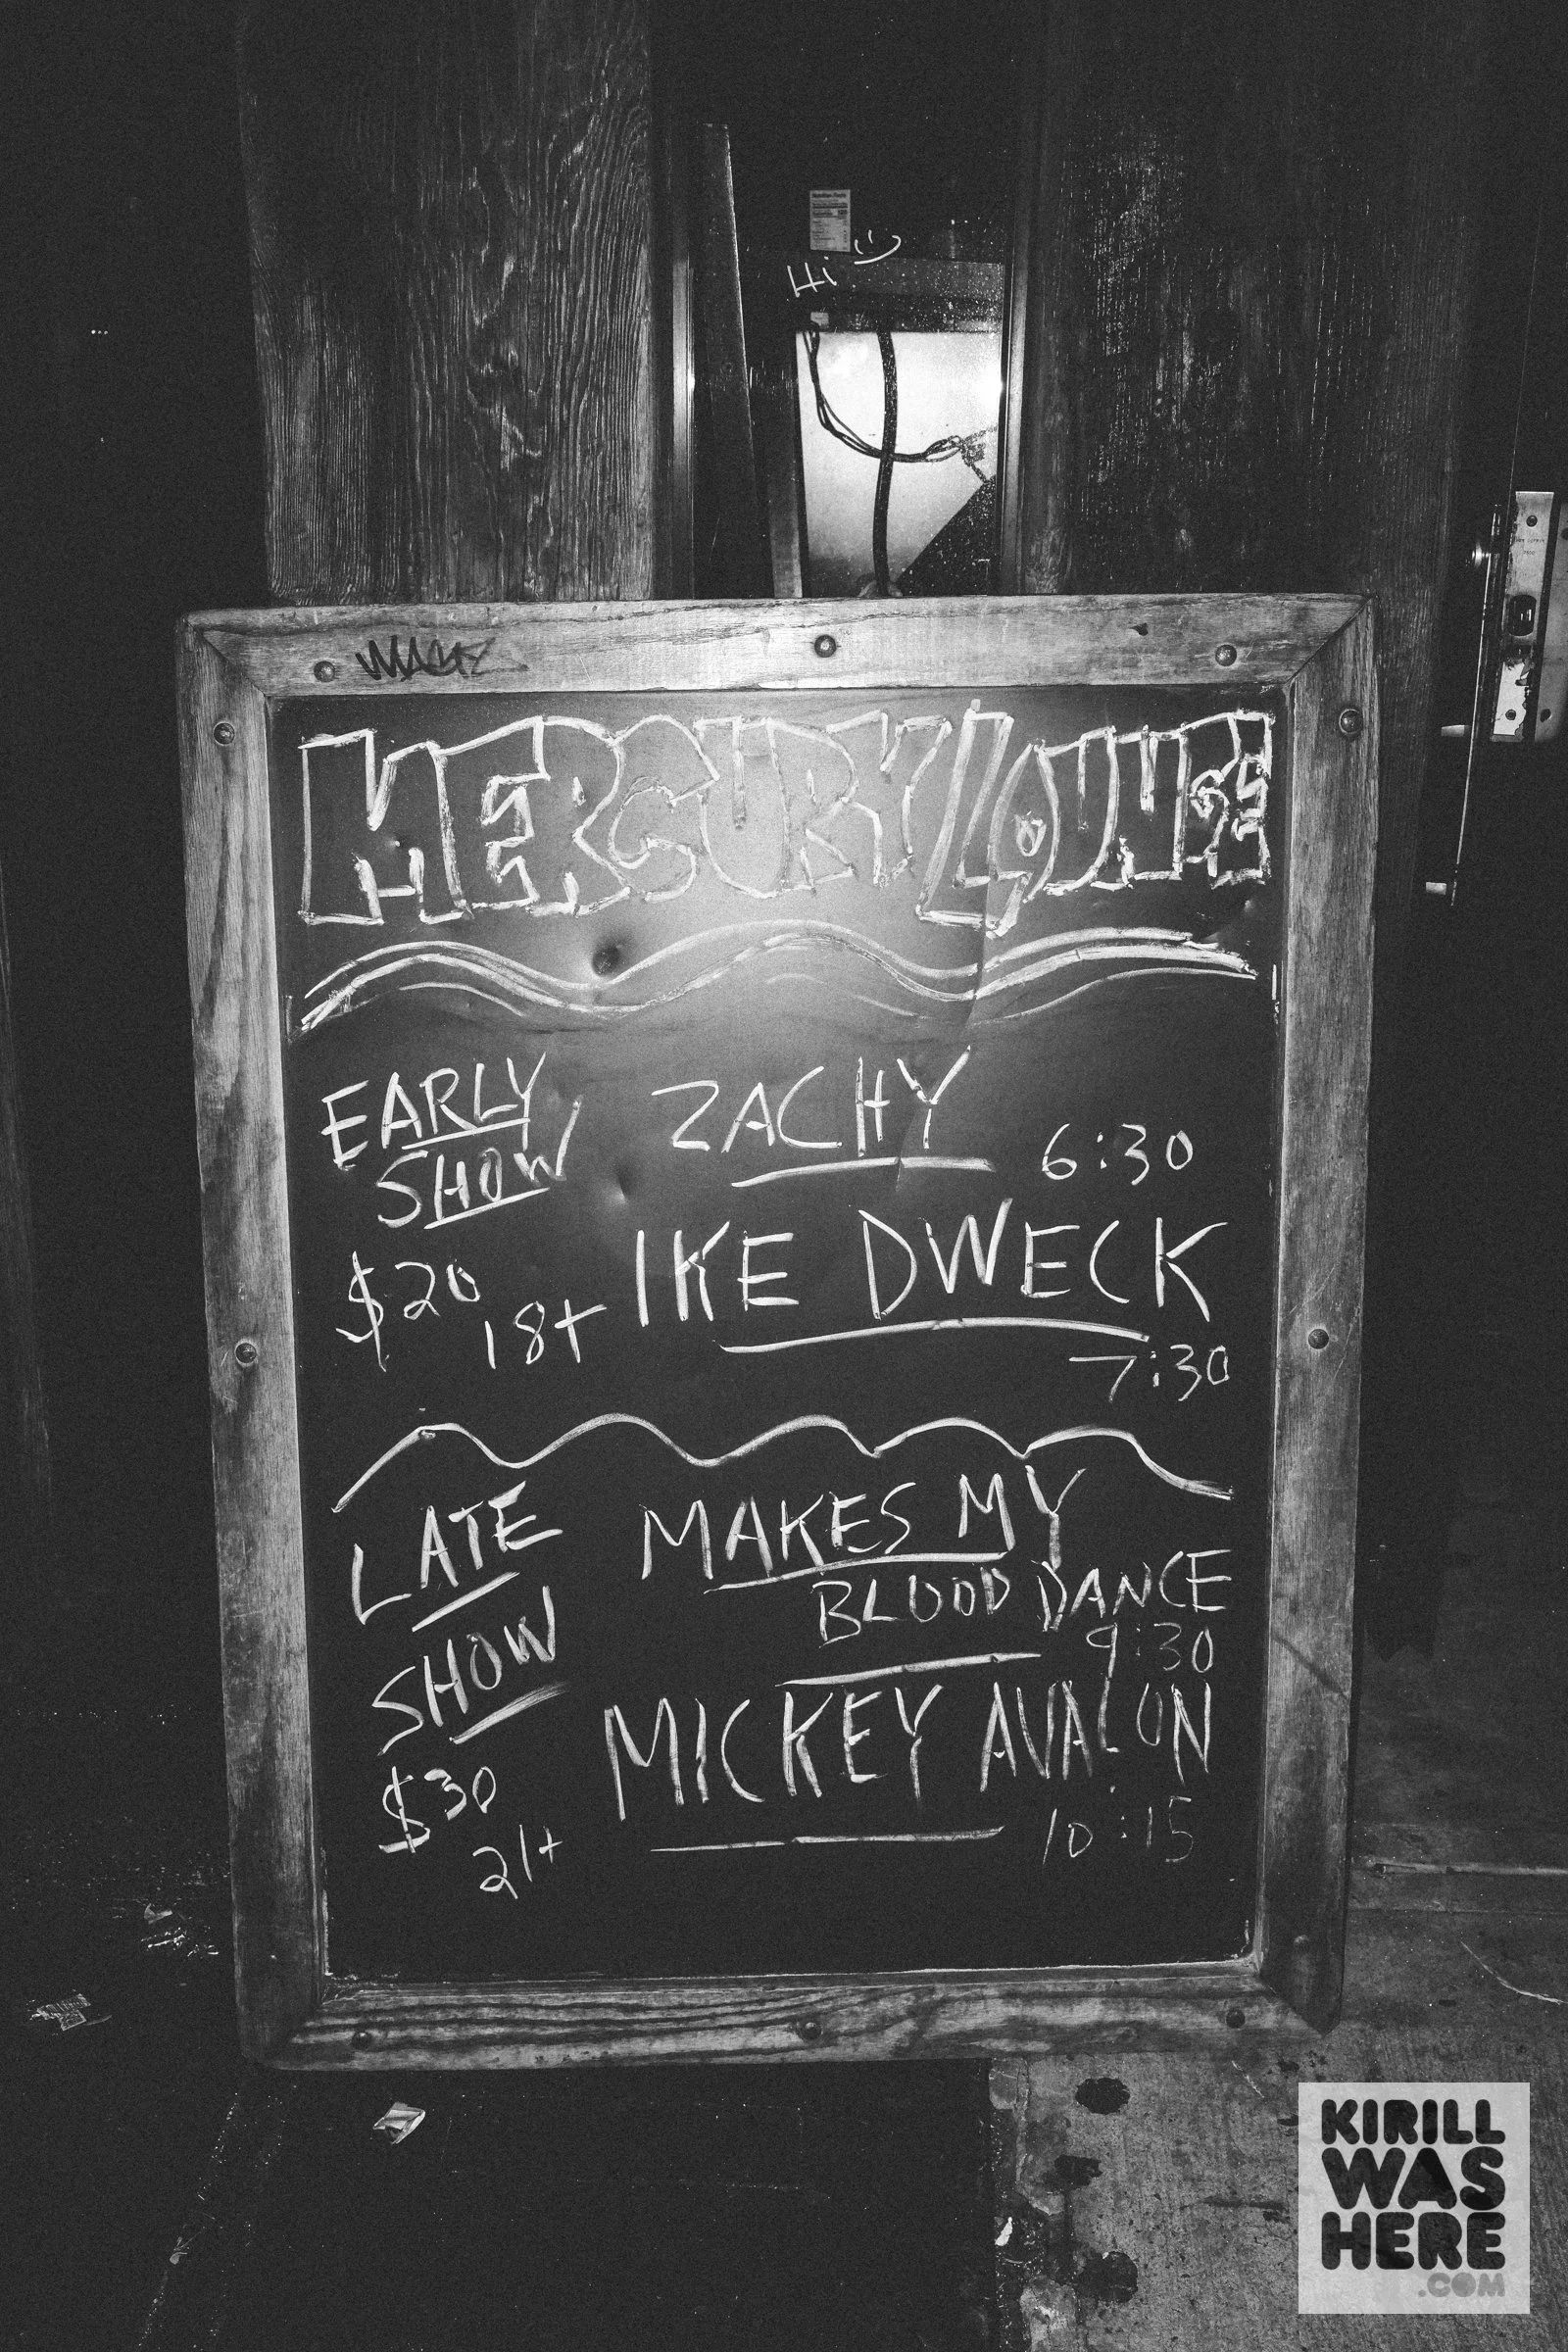 Hi :)
MERCURY LOUNGE
EARLY
SHOW
ZACHY
6:30
$20
18+
IKE DWECK
7:30
LATE
SHOW
MAKES MY
BLOOD DANCE
9:30
$30
21+
MICKEY AVALON
10:15
KIRILL
WAS
HERE
.COM